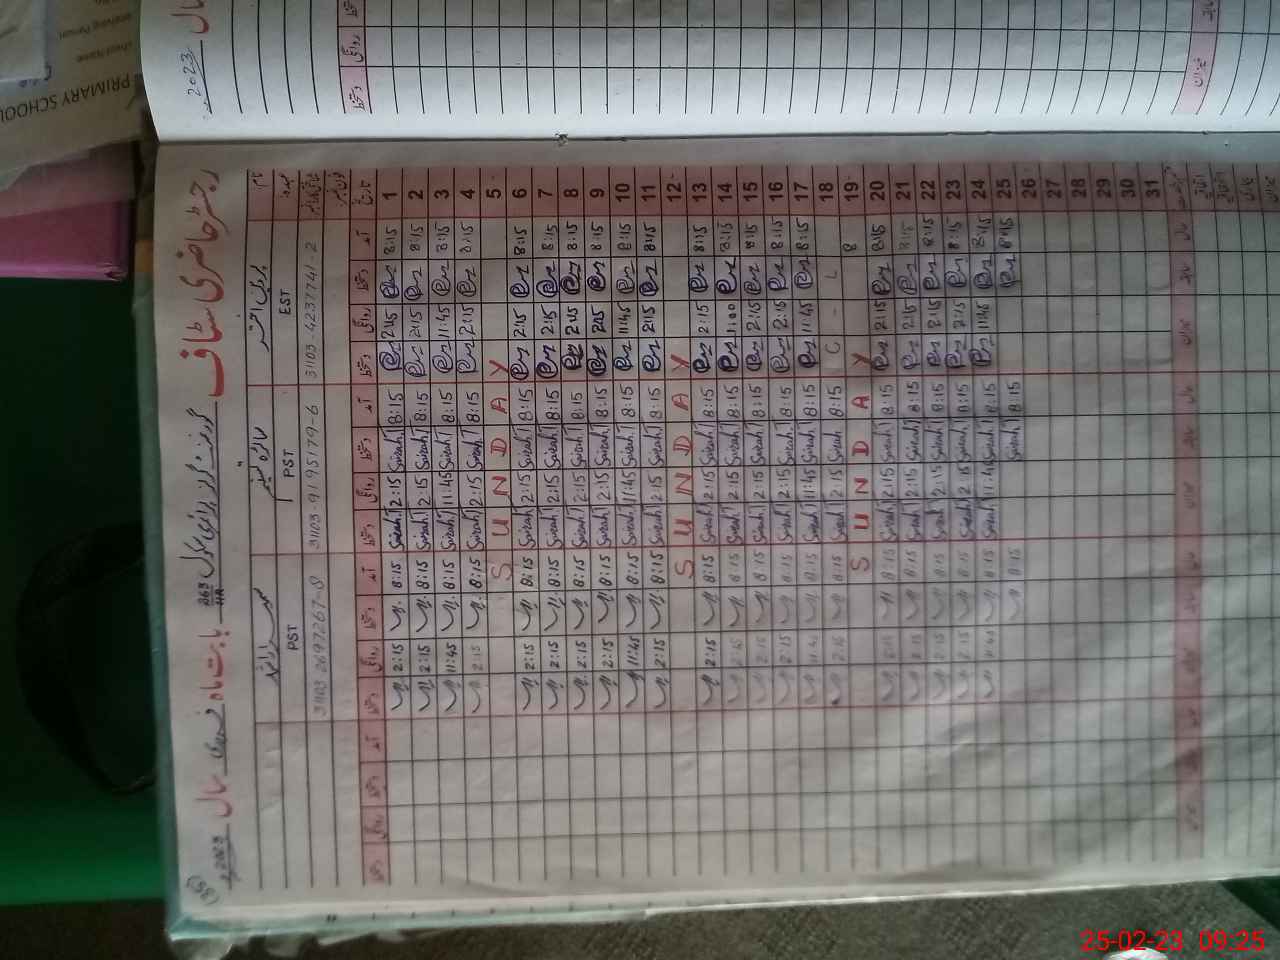 رجسٹر حاضری سٹاف گورنمنٹ گرلز پرائمری سکول 263 HR بابت ماہ فروری سال 2023ء
نام
عہدہ EST PST PST
31103-4237741-2 31103-9195179-6 31103-2697267-8
تاریخ آمد دستخط روانگی دستخط آمد دستخط روانگی دستخط آمد دستخط روانگی دستخط آمد دستخط روانگی دستخط
1 8:15 2:15 8:15 Sairah 2:15 Sairah 8:15 2:15
2 8:15 2:15 8:15 Sairah 2:15 Sairah 8:15 2:15
3 8:15 11:45 8:15 Sairah 11:45 Sairah 8:15 11:45
4 8:15 2:15 8:15 Sairah 2:15 Sairah 8:15 2:15
5 S U N D A Y
6 8:15 2:15 8:15 Sairah 2:15 Sairah 8:15 2:15
7 8:15 2:15 8:15 Sairah 2:15 Sairah 8:15 2:15
8 8:15 2:15 8:15 Sairah 2:15 Sairah 8:15 2:15
9 8:15 2:15 8:15 Sairah 2:15 Sairah 8:15 2:15
10 8:15 11:45 8:15 Sairah 11:45 Sairah 8:15 11:45
11 8:15 2:15 8:15 Sairah 2:15 Sairah 8:15 2:15
12 S U N D A Y
13 8:15 2:15 8:15 Sairah 2:15 Sairah 8:15 2:15
14 8:15 1:00 8:15 Sairah 2:15 Sairah 8:15 2:15
15 8:15 2:15 8:15 Sairah 2:15 Sairah 8:15 2:15
16 8:15 2:15 8:15 Sairah 2:15 Sairah 8:15 2:15
17 8:15 11:45 8:15 Sairah 11:45 Sairah 8:15 11:45
18 C - L 8:15 Sairah 2:15 Sairah 8:15 2:15
19 S U N D A Y
20 8:15 2:15 8:15 Sairah 2:15 Sairah 8:15 2:15
21 8:15 2:15 8:15 Sairah 2:15 Sairah 8:15 2:15
22 8:15 2:15 8:15 Sairah 2:15 Sairah 8:15 2:15
23 8:15 2:15 8:15 Sairah 2:15 Sairah 8:15 2:15
24 8:15 11:45 8:15 Sairah 11:45 Sairah 8:15 11:45
25 8:15 8:15 Sairah 8:15
26
27
28
29
30
31
سال 2023
دستخط روانگی دستخط
میزان
PRIMARY SCHOOL
25-02-23 09:25